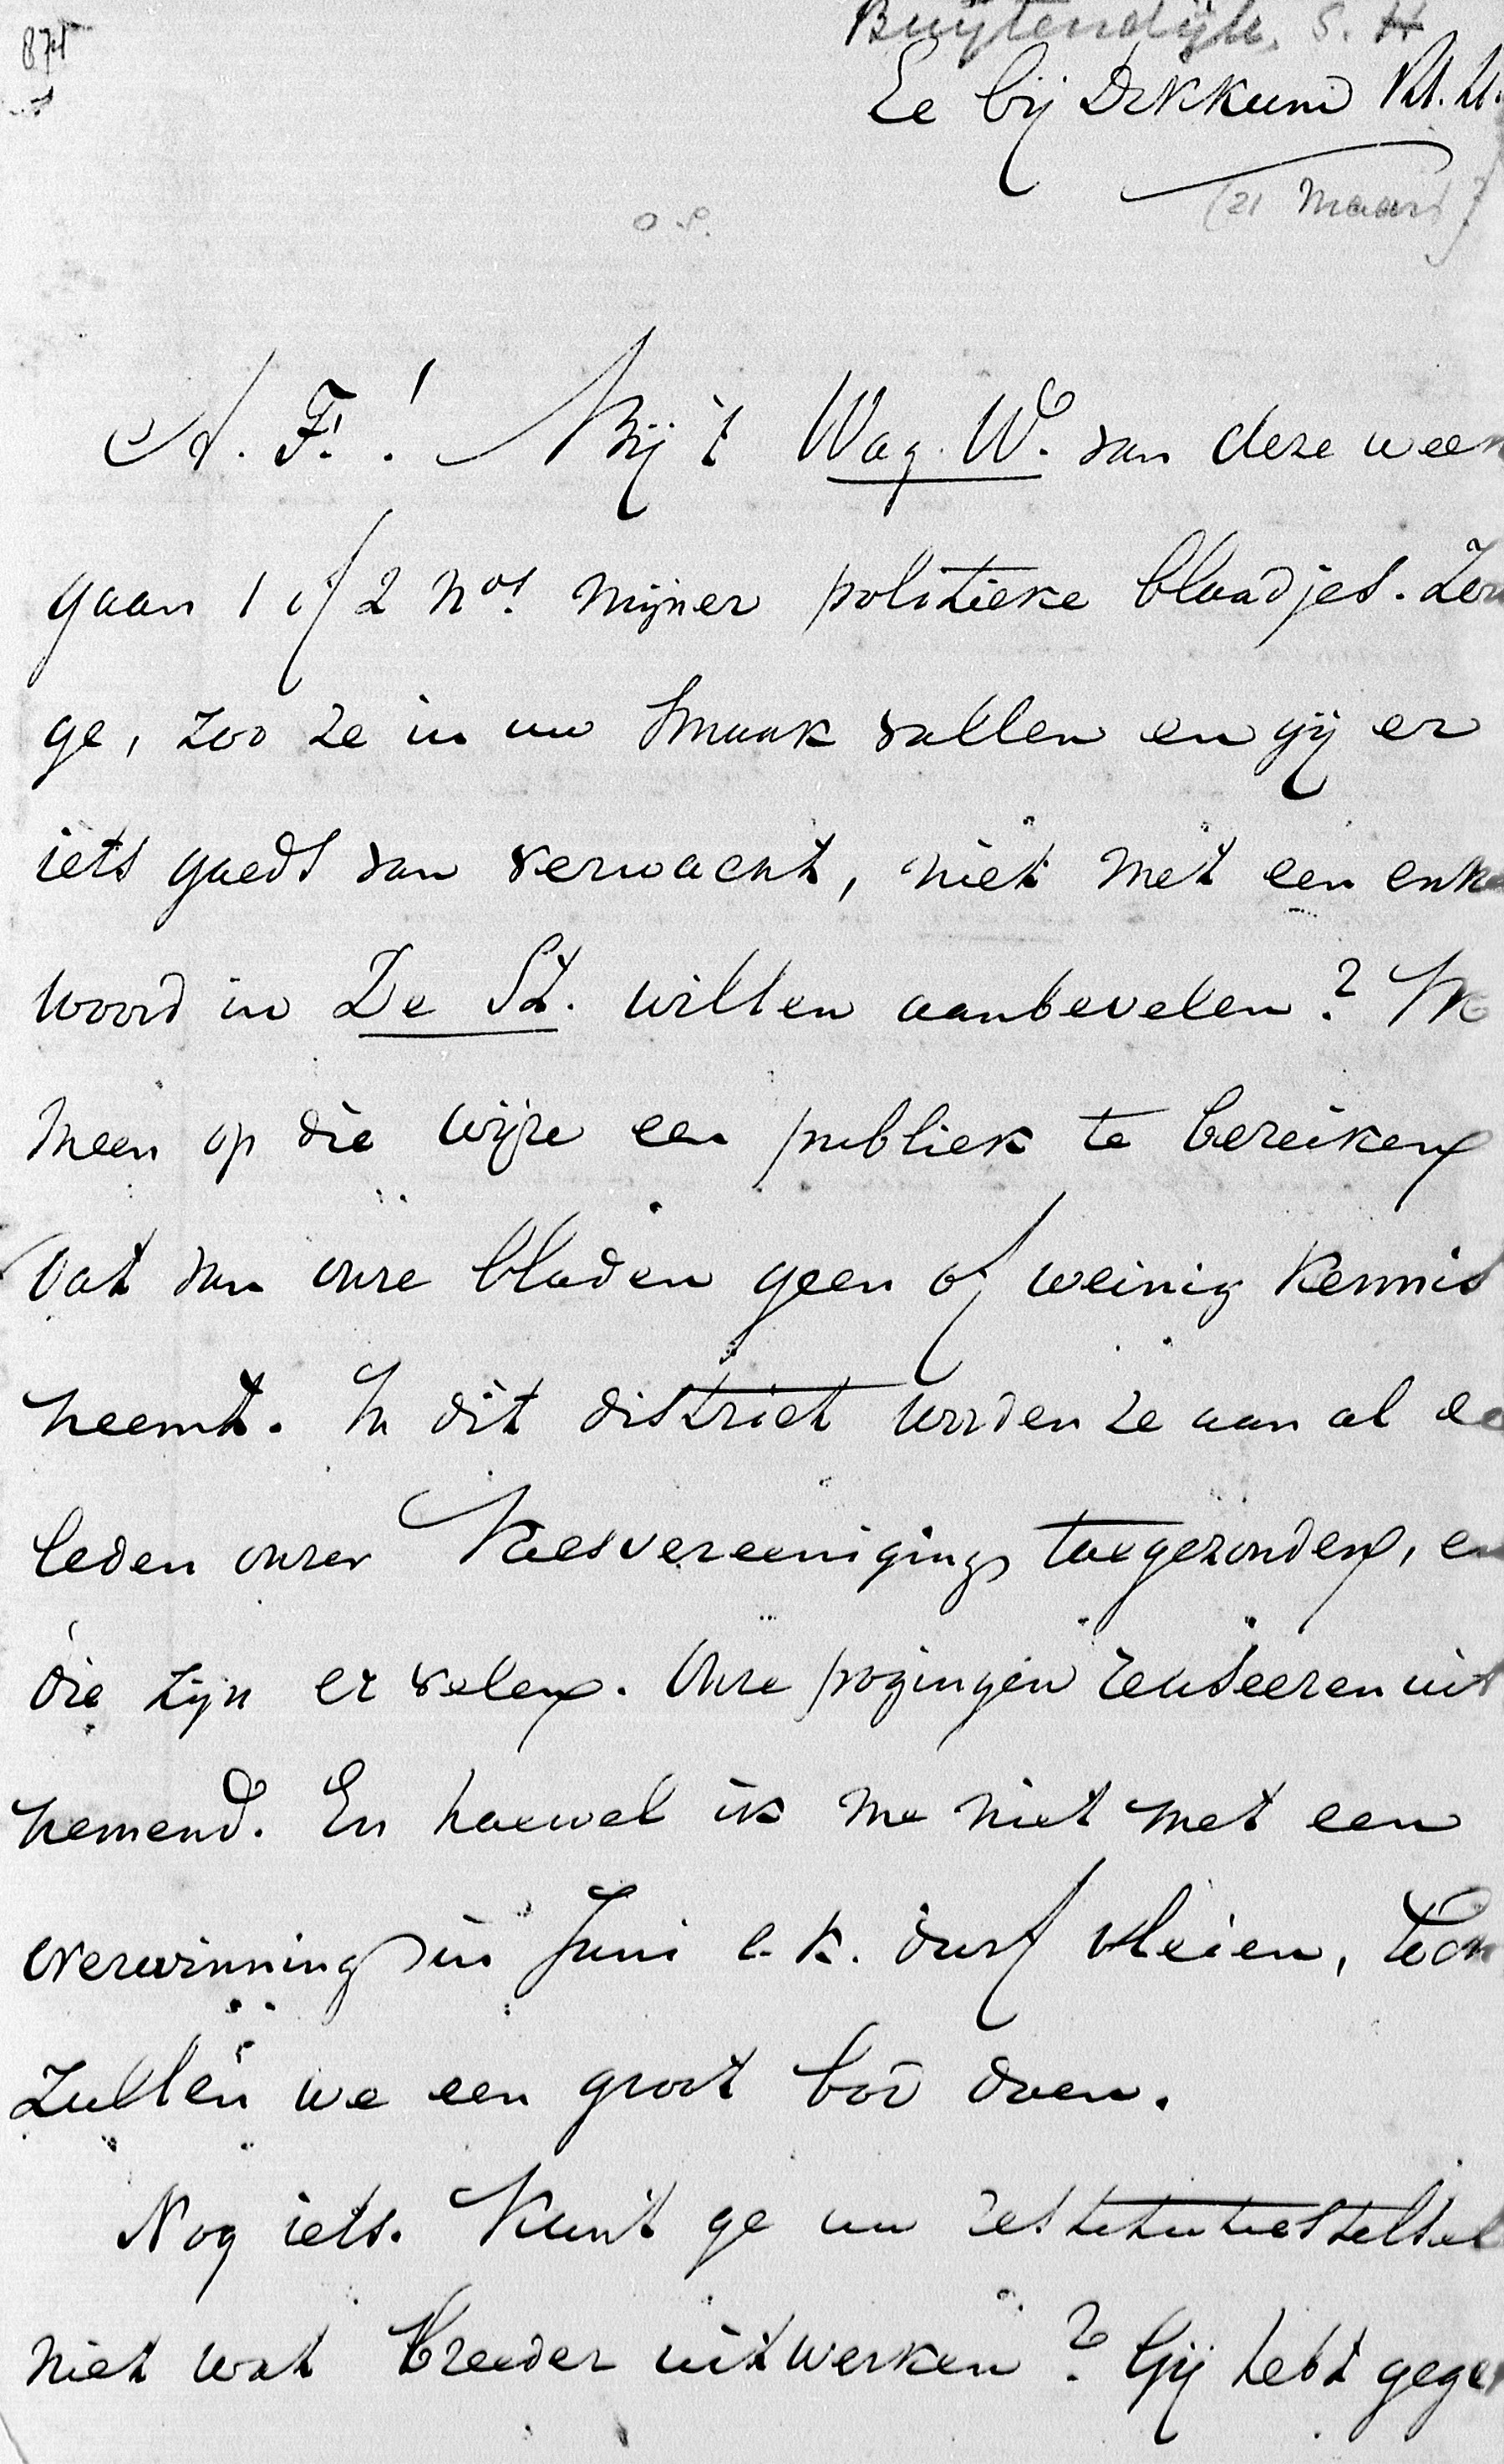 871
Buijtendijk, S. H
Ee bij Dokkum
(21 Maart)
O.S.
A. F.! Bij 't Wag. W. van deze week
gaan 1 of 2 nos. mijner politieke blaadjes. Zou
ge, zoo ze in uw smaak vallen en gij er
iets goeds van verwacht, niet met een enkel
woord in De St. willen aanbevelen? We
meen op die wijze een publiek te bereiken
dat van onze bladen geen of weinig kennis
neemt. In dit district worden ze aan al de
leden onzer Kiesvereeniging toegezonden, en
die zijn er velen. Onze pogingen reusseeren uit
nemend. En hoewel ik me niet met een
overwinning in Juni e.k. durf vleien, toch
zullen we een groot bod doen.
Nog iets. Kunt ge uw restitutiestelsel
niet wat breeder uitwerken? Gij hebt gege